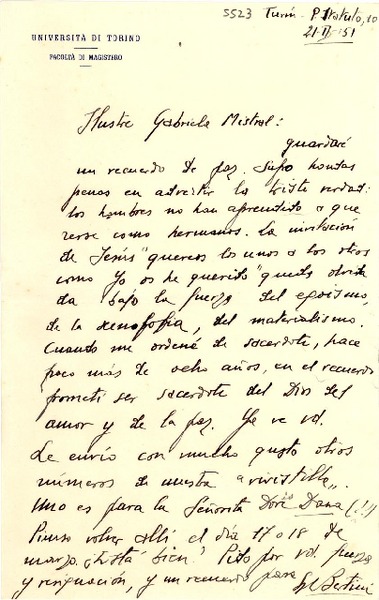 5523 Turín - P. Statuto, 10
21-II-51
UNIVERSITÀ DI TORINO
FACOLTÀ DI MAGISTERO
Ilustre Gabriela Mistral:
guardaré
un recuerdo de paz. Sufro hontas
penas en advertir la triste verdad:
los hombres no han aprendido a que
rerse como hermanos. La invitación
de Jesús "quereos los unos a los otros
como Yo os he querido" queda olvida
da bajo la fuerza del egoismo,
de la xenofofia, del materialismo.
Cuando me ordené de sacerdote, hace
poco más de ocho años, en el recuerdo
prometí ser sacerdote del Dios del
amor y de la paz. Ya ve Vd.
Le envío con mucho gusto otros
números de nuestra
Uno es para la Señorita Doris Dana (!!)
Pienso volver allí el día 17 o 18 de
marzo. ¿Está bien? Pido por Vd. fuerza
y resignación, y un recuerdo para
Bertini